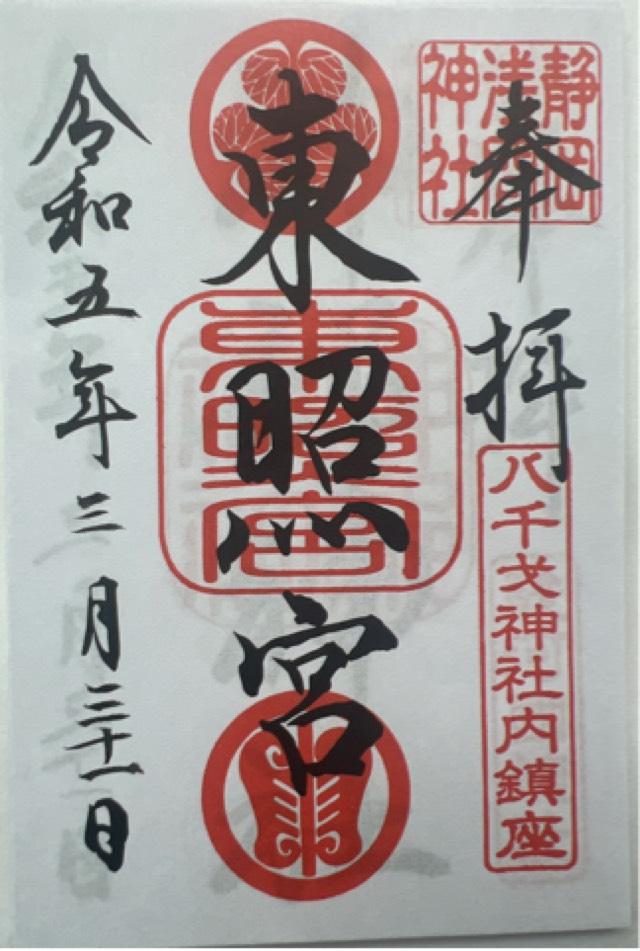 奉拝
静岡浅間神社
八千戈神社内鎮座
東照宮
東照宮
令和五年三月三十一日